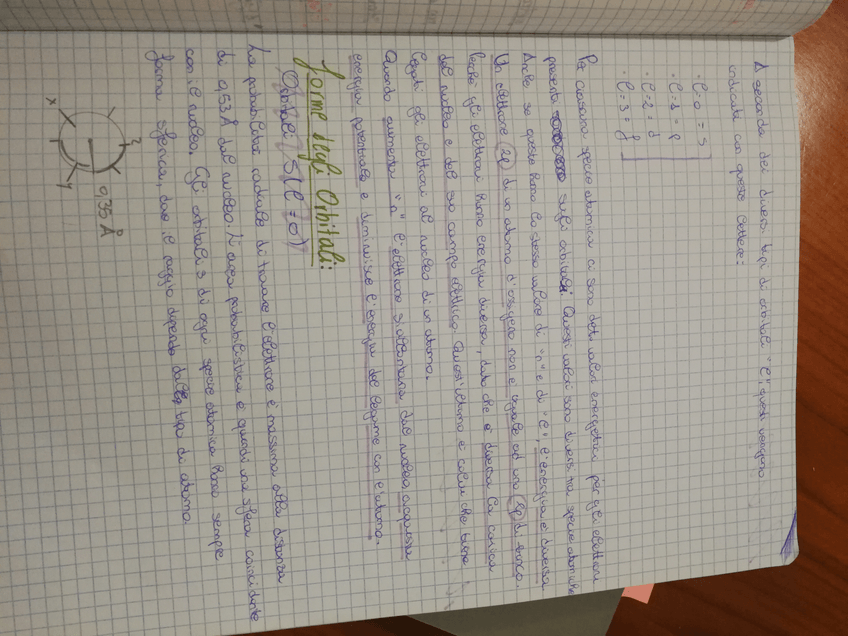 A seconda dei diversi tipi di orbitali "l", questi vengono
indicati con queste lettere:
· l=0 = s
· l=1 = p
· l=2 = d
· l=3 = f
Per ciascuna specie atomica ci sono dati valori energetici per gli elettroni
presenti sugli orbitali. Questi valori sono diversi tra specie atomiche
Anche se queste hanno lo stesso valore di "n" e di "l", l'energia è diversa
Un elettrone 2p di un atomo d'ossigeno non è uguale ad una 2p di
Perché gli elettroni hanno energia diversa, dato che è diversa la carica
del nucleo e del suo campo elettrico. Quest'ultimo è colui che tiene
legati gli elettroni al nucleo di un atomo.
Quando aumenta "n" l'elettrone s'allontana dal nucleo, acquista
energia potenziale e diminuisce l'energia del legame con l'atomo.
Forme degli Orbitali:
Orbitali S (l=0)
La probabilità radiale di trovare l'elettrone è massima alla distanza
di 0,53 Å dal nucleo. L'area probabilistica è quindi una sfera coincidente
con il nucleo. Gli orbitali s di ogni specie atomica hanno sempre
forma sferica, dove il raggio dipende dal tipo di atomo.
x
z
y
0,35 Å